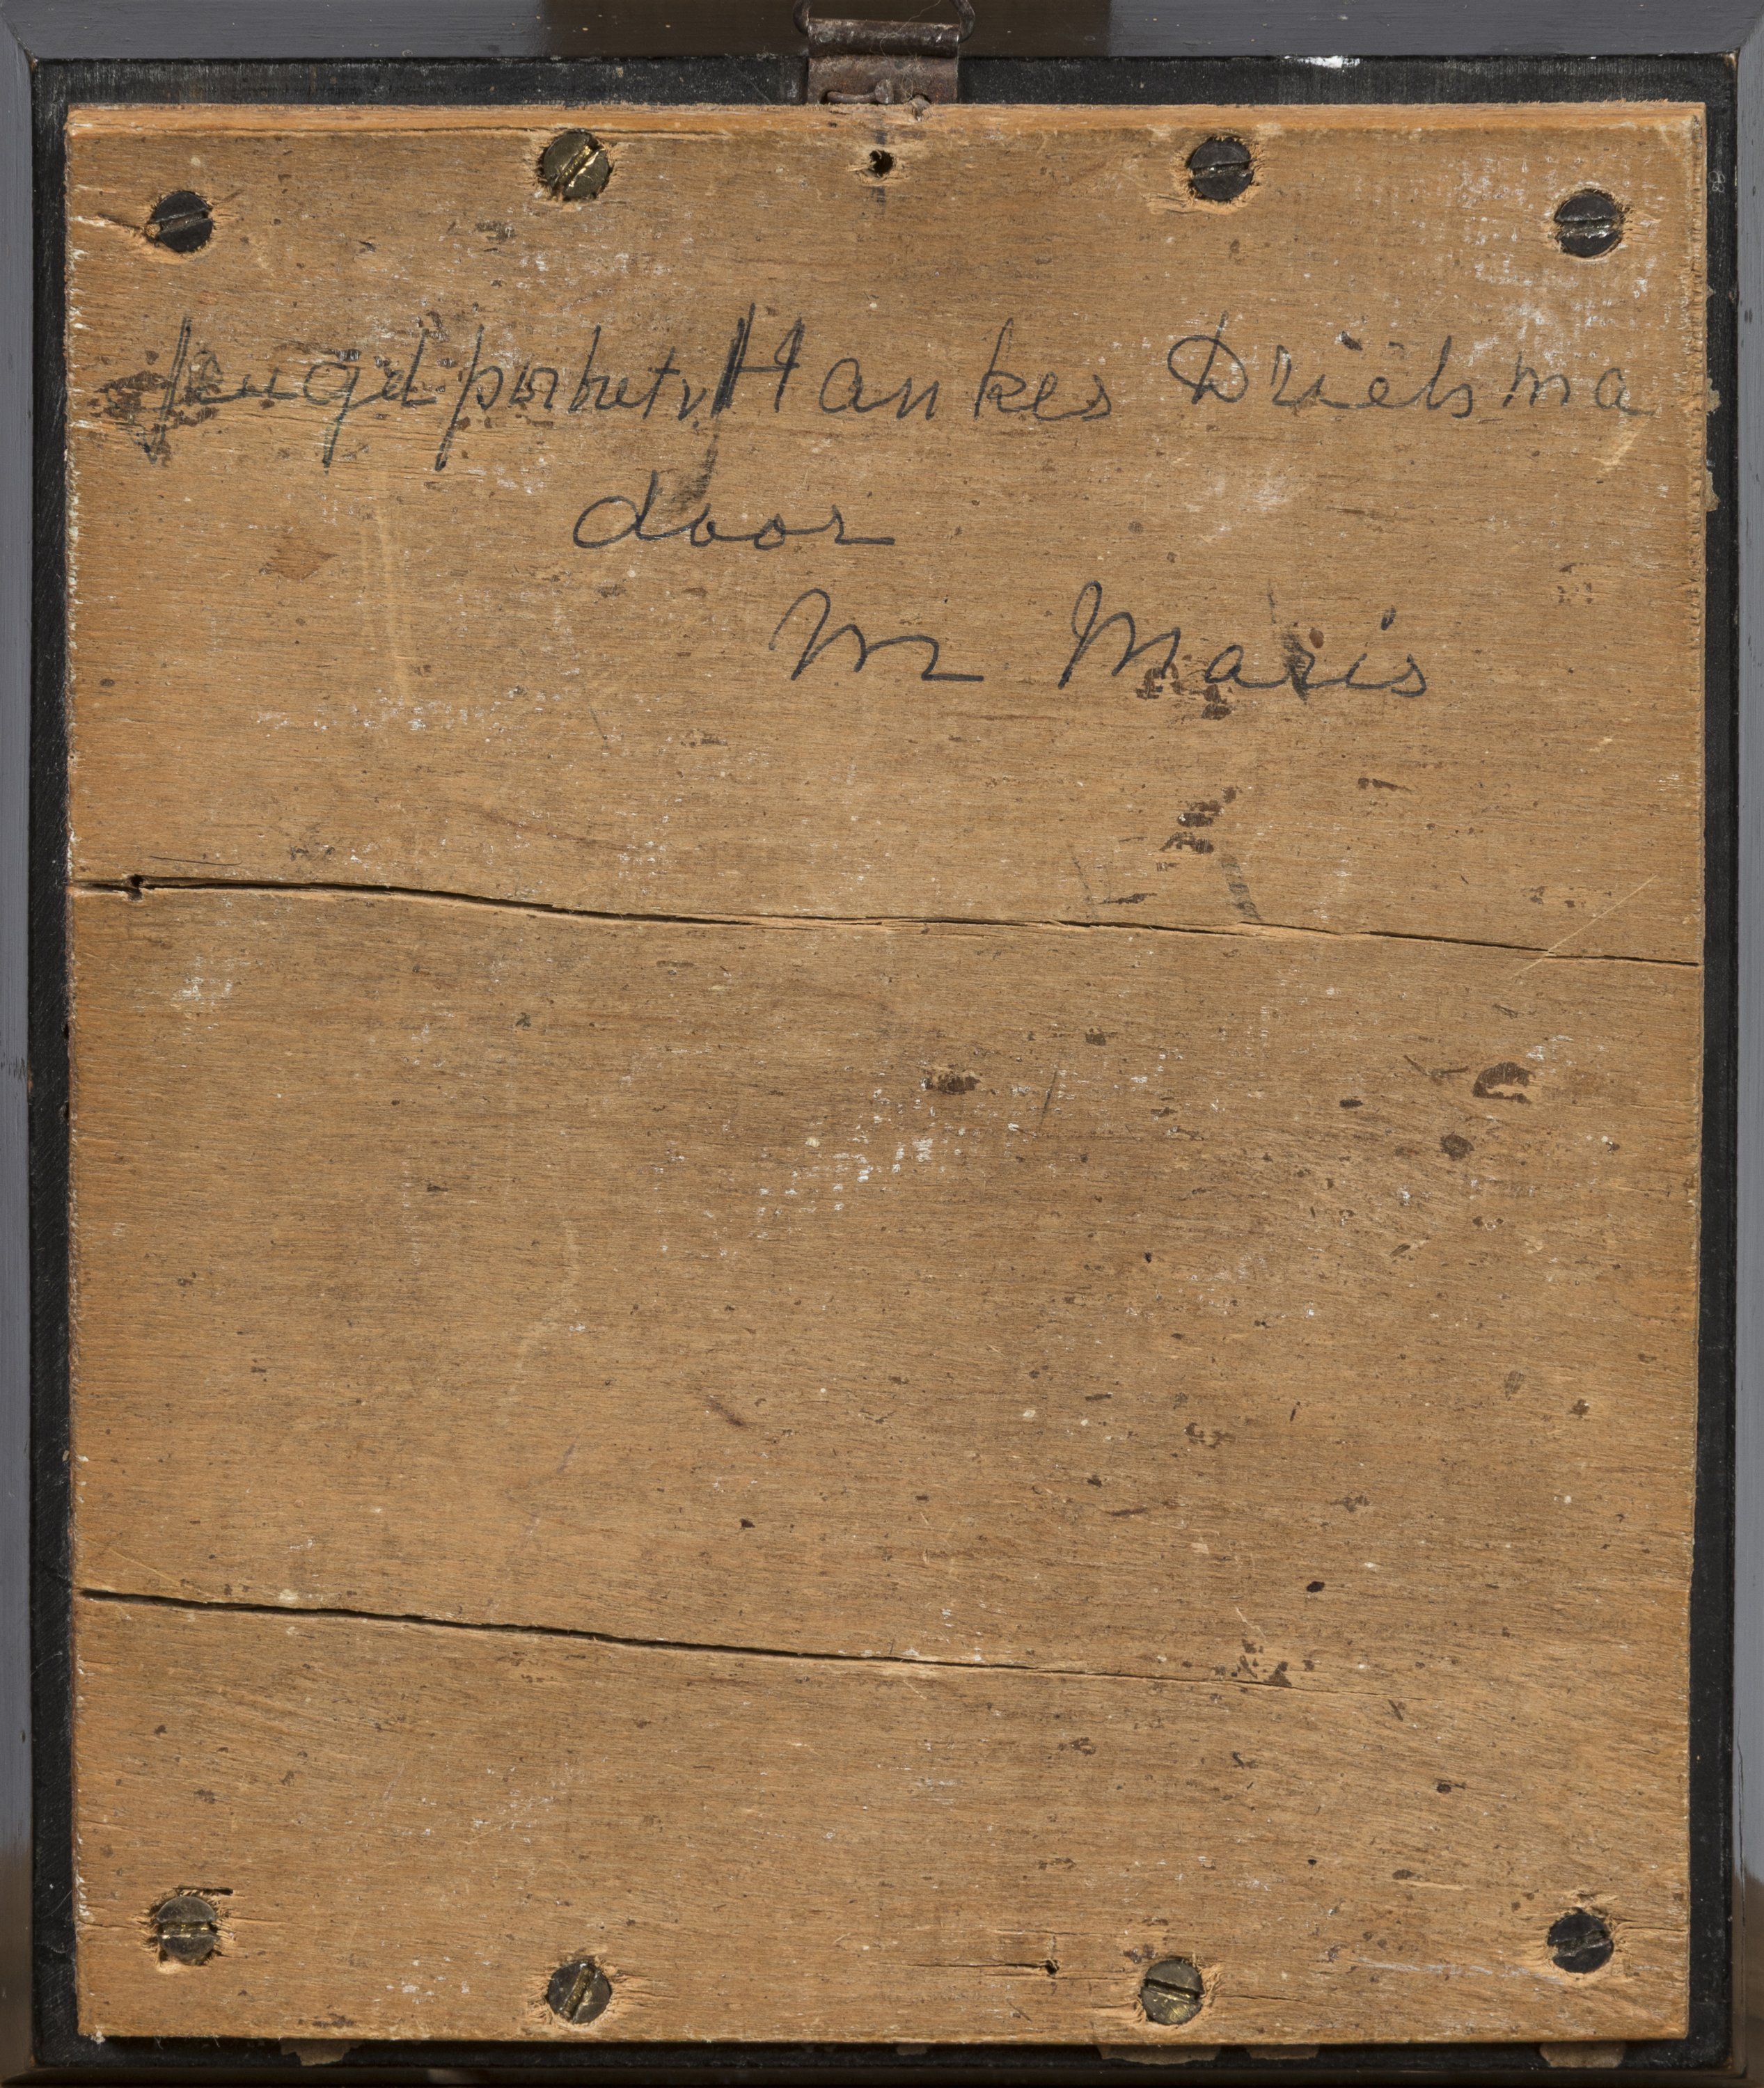 Jeugdportret v Hankes Drielsma
door
W Maris